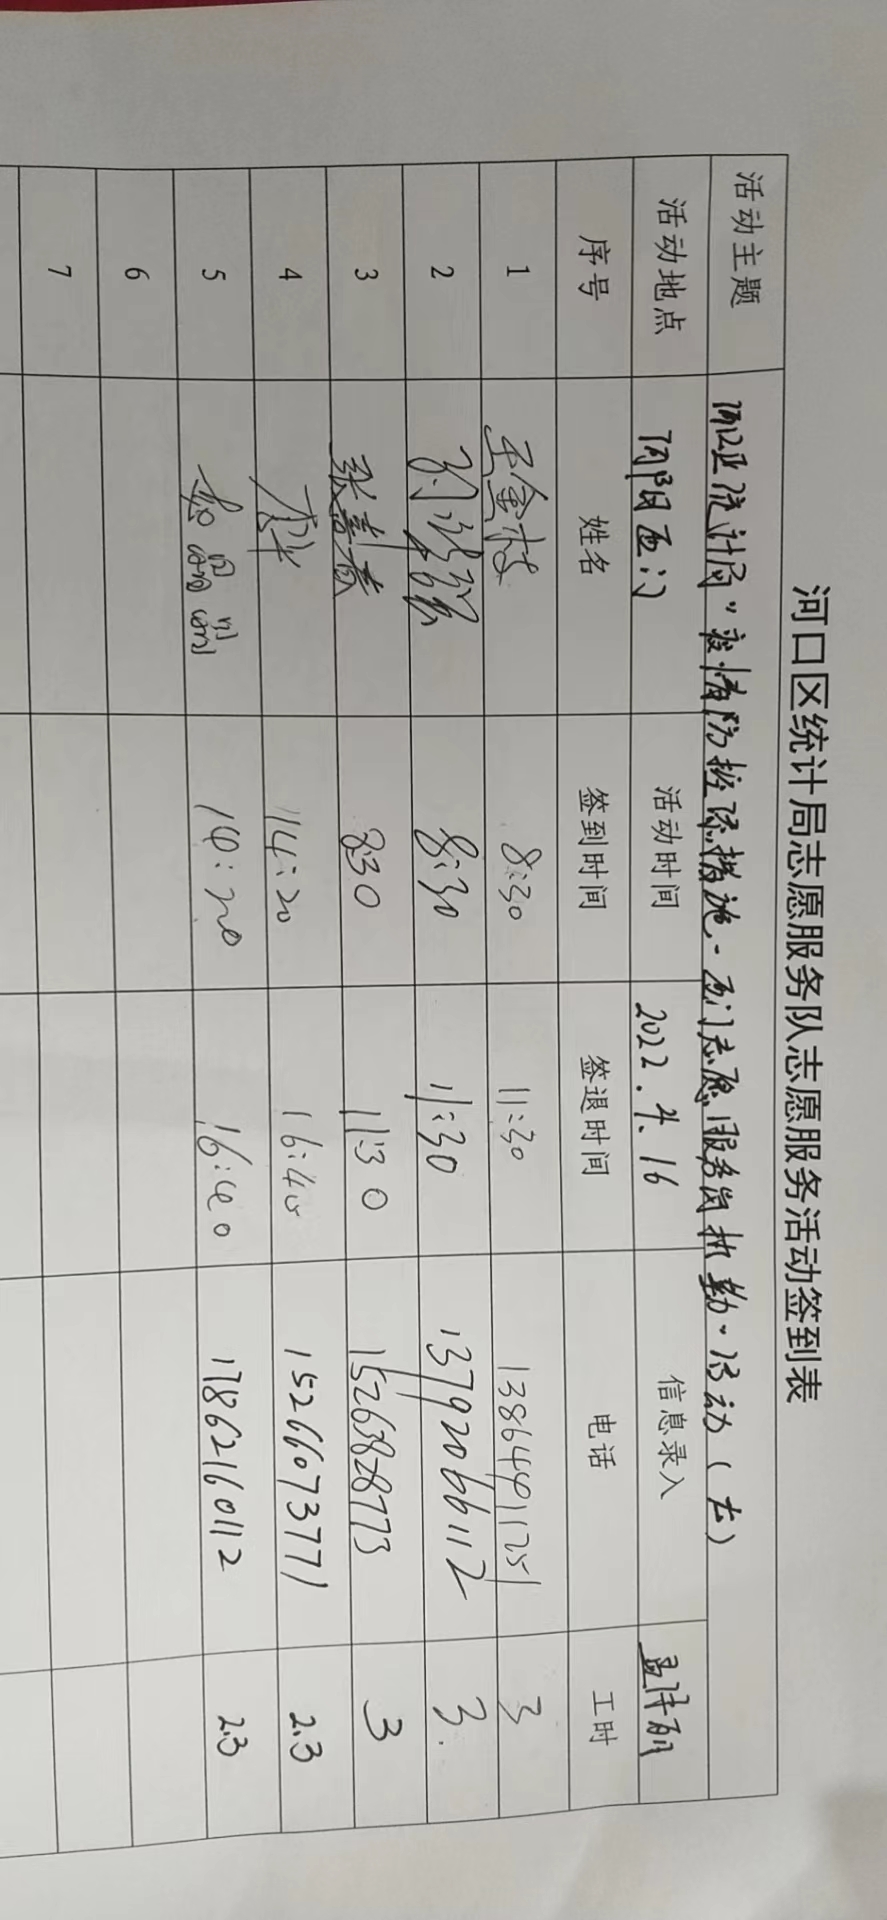 河口区统计局志愿服务队志愿服务活动签到表
活动主题 河口区统计局“疫情防控 措施-西门志愿服务岗执勤”活动（ ）
活动地点 河阳西门 活动时间 2022.4.16 信息录入
序号 姓名 签到时间 签退时间 电话 工时
1 王金枝 8:30 11:30 13864491251 3
2 8:30 11:30 13792066112 3
3 张春香 8:30 11:30 15263828773 3
4 14:20 16:40 15266073771 2.3
5 14:20 16:40 17862160112 2.3
6
7